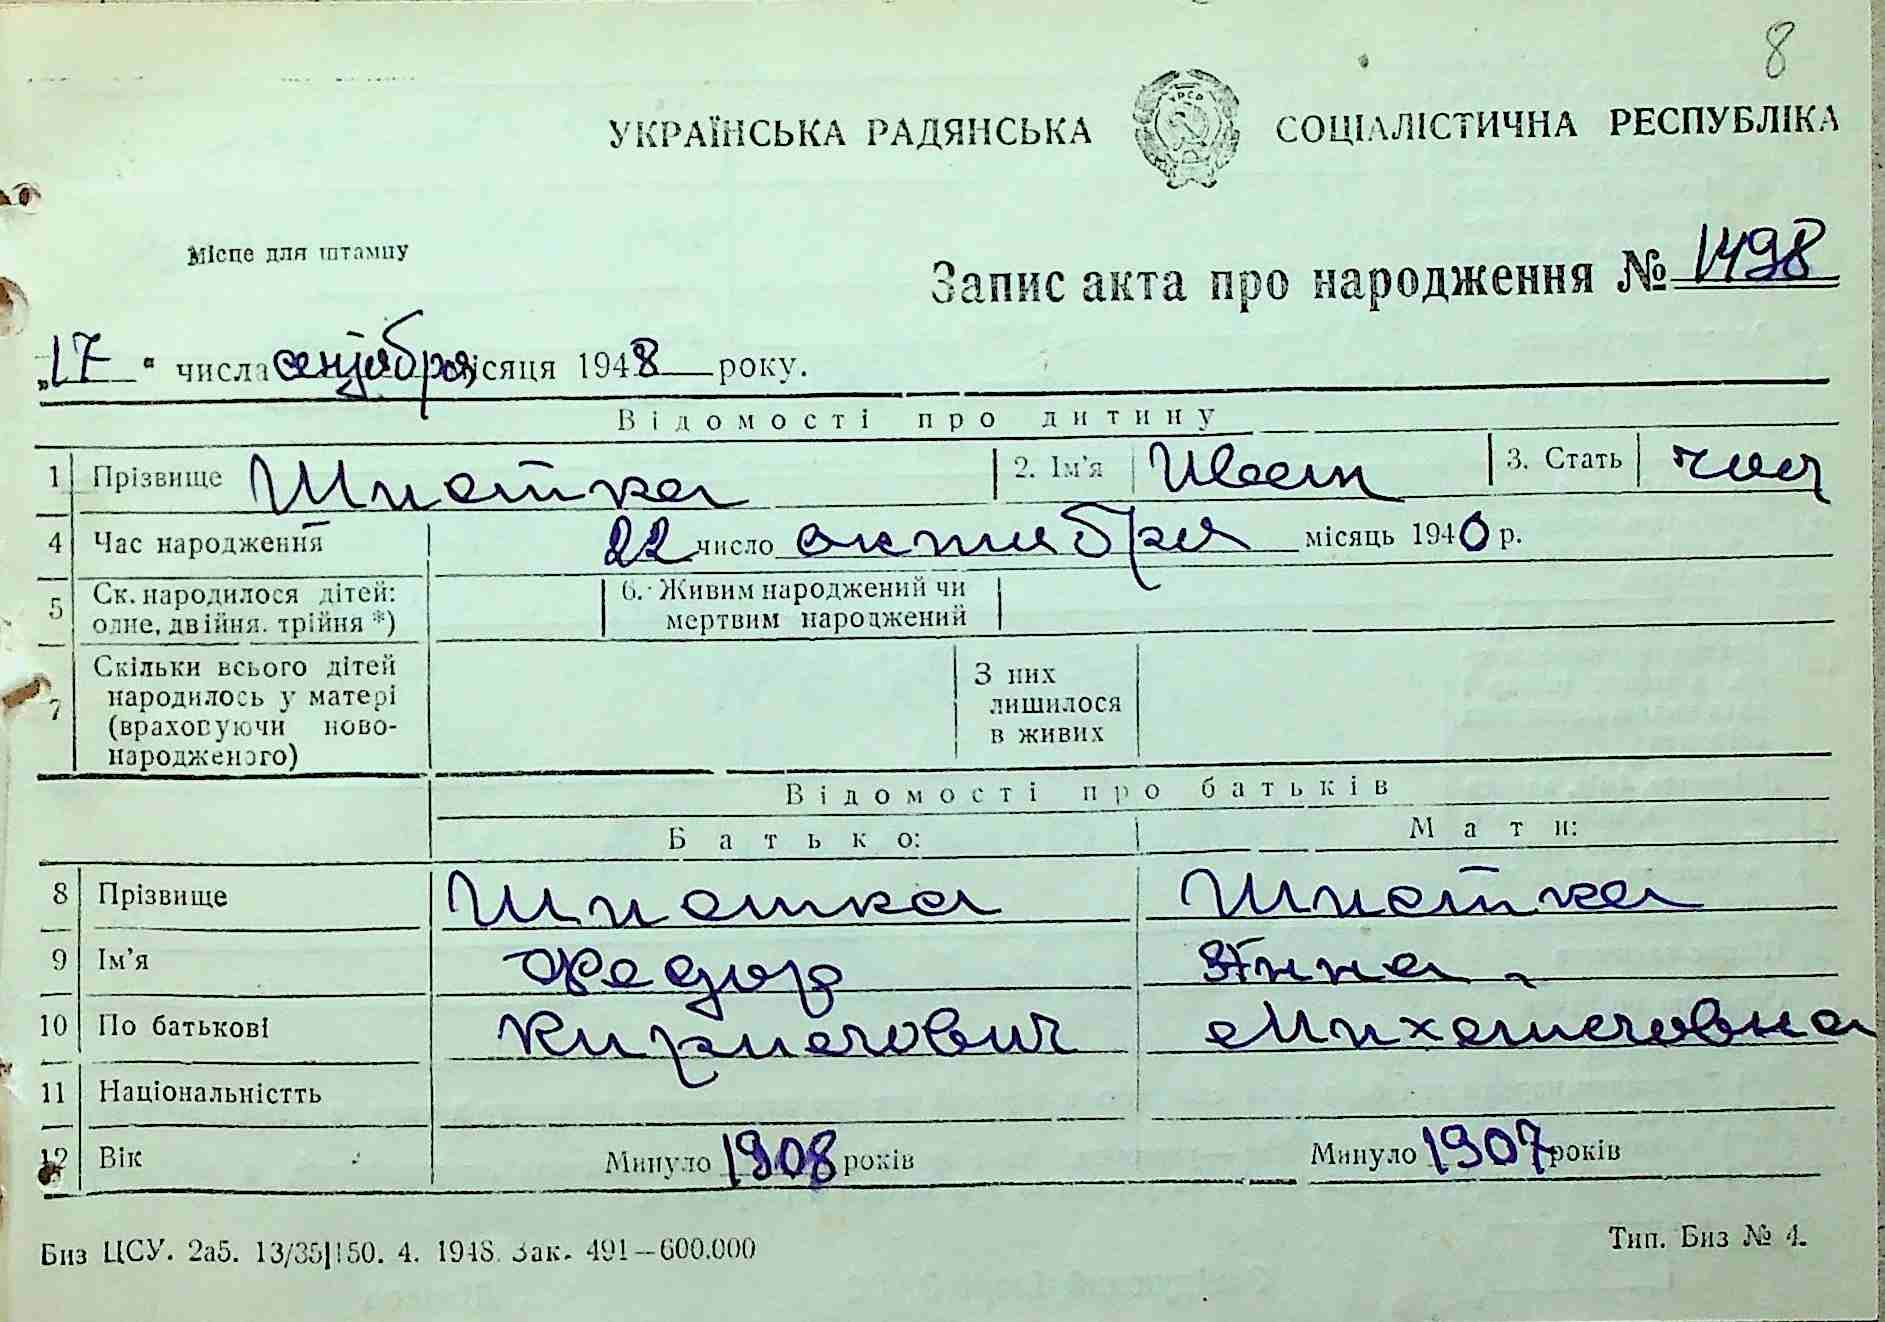 8
УКРАЇНСЬКА РАДЯНСЬКА СОЦІАЛІСТИЧНА РЕСПУБЛІКА
УРСР
Місце для штампу
Запис акта про народження № 1498
„17“ числа сентября місяця 1948 року.
Відомості про дитину
1 Прізвище Шпотка 2. Ім'я Иван 3. Стать
4 Час народження 22 число октября місяць 1940 р.
5 Ск. народилося дітей: одне, двійня. трійня *) 6. Живим народжений чи мертвим народжений
7 Скільки всього дітей народилось у матері (враховуючи ново-народженого) З них лишилося в живих
Відомості про батьків
Батько: Мати:
8 Прізвище Шпотка Шпотка
9 Ім'я Федор Анна
10 По батькові Кирилович Михайловна
11 Національністть
12 Вік Минуло 1908 років Минуло 1907 років
Биз ЦСУ. 2а5. 13/35|150. 4. 1948. Зак. 491—600.000 Тип. Биз № 4.